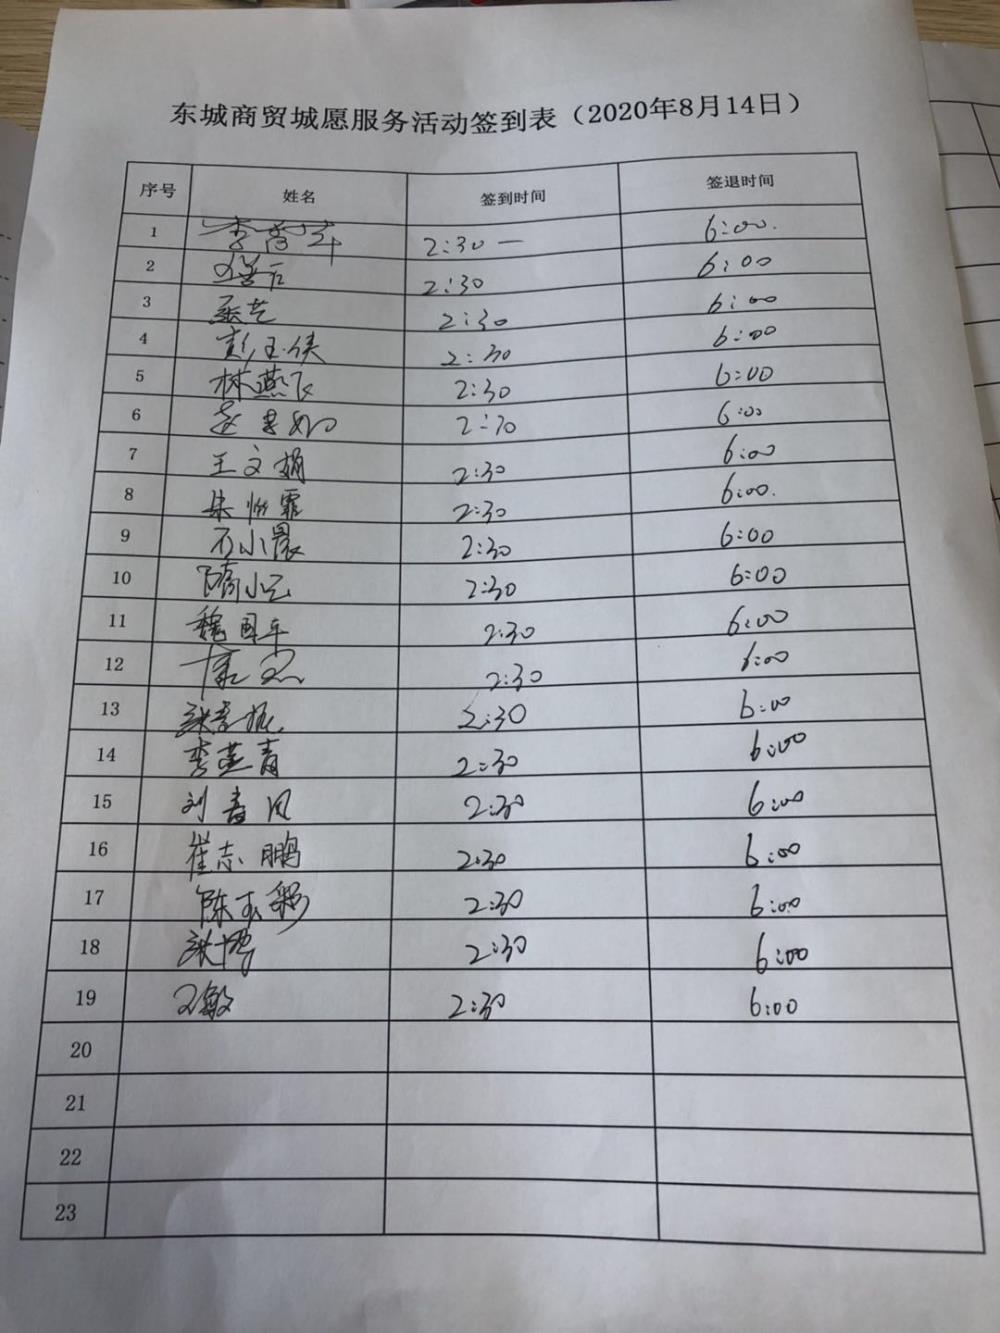 东城商贸城愿服务活动签到表（2020年8月14日）
序号 姓名 签到时间 签退时间
1 2:30 — 6:00.
2 2:30 6:00
3 2:30 6:00
4 彭玉侠 2:30 6:00
5 林燕飞 2:30 6:00
6 2:30 6:00
7 王文娟 2:30 6:00
8 2:30 6:00.
9 石小晨 2:30 6:00
10 2:30 6:00
11 魏国车 2:30 6:00
12 2:30 6:00
13 2:30 6:00
14 李燕青 2:30 6:00
15 刘春风 2:30 6:00
16 崔志鹏 2:30 6:00
17 陈 2:30 6:00
18 张博 2:30 6:00
19 敏 2:30 6:00
20
21
22
23